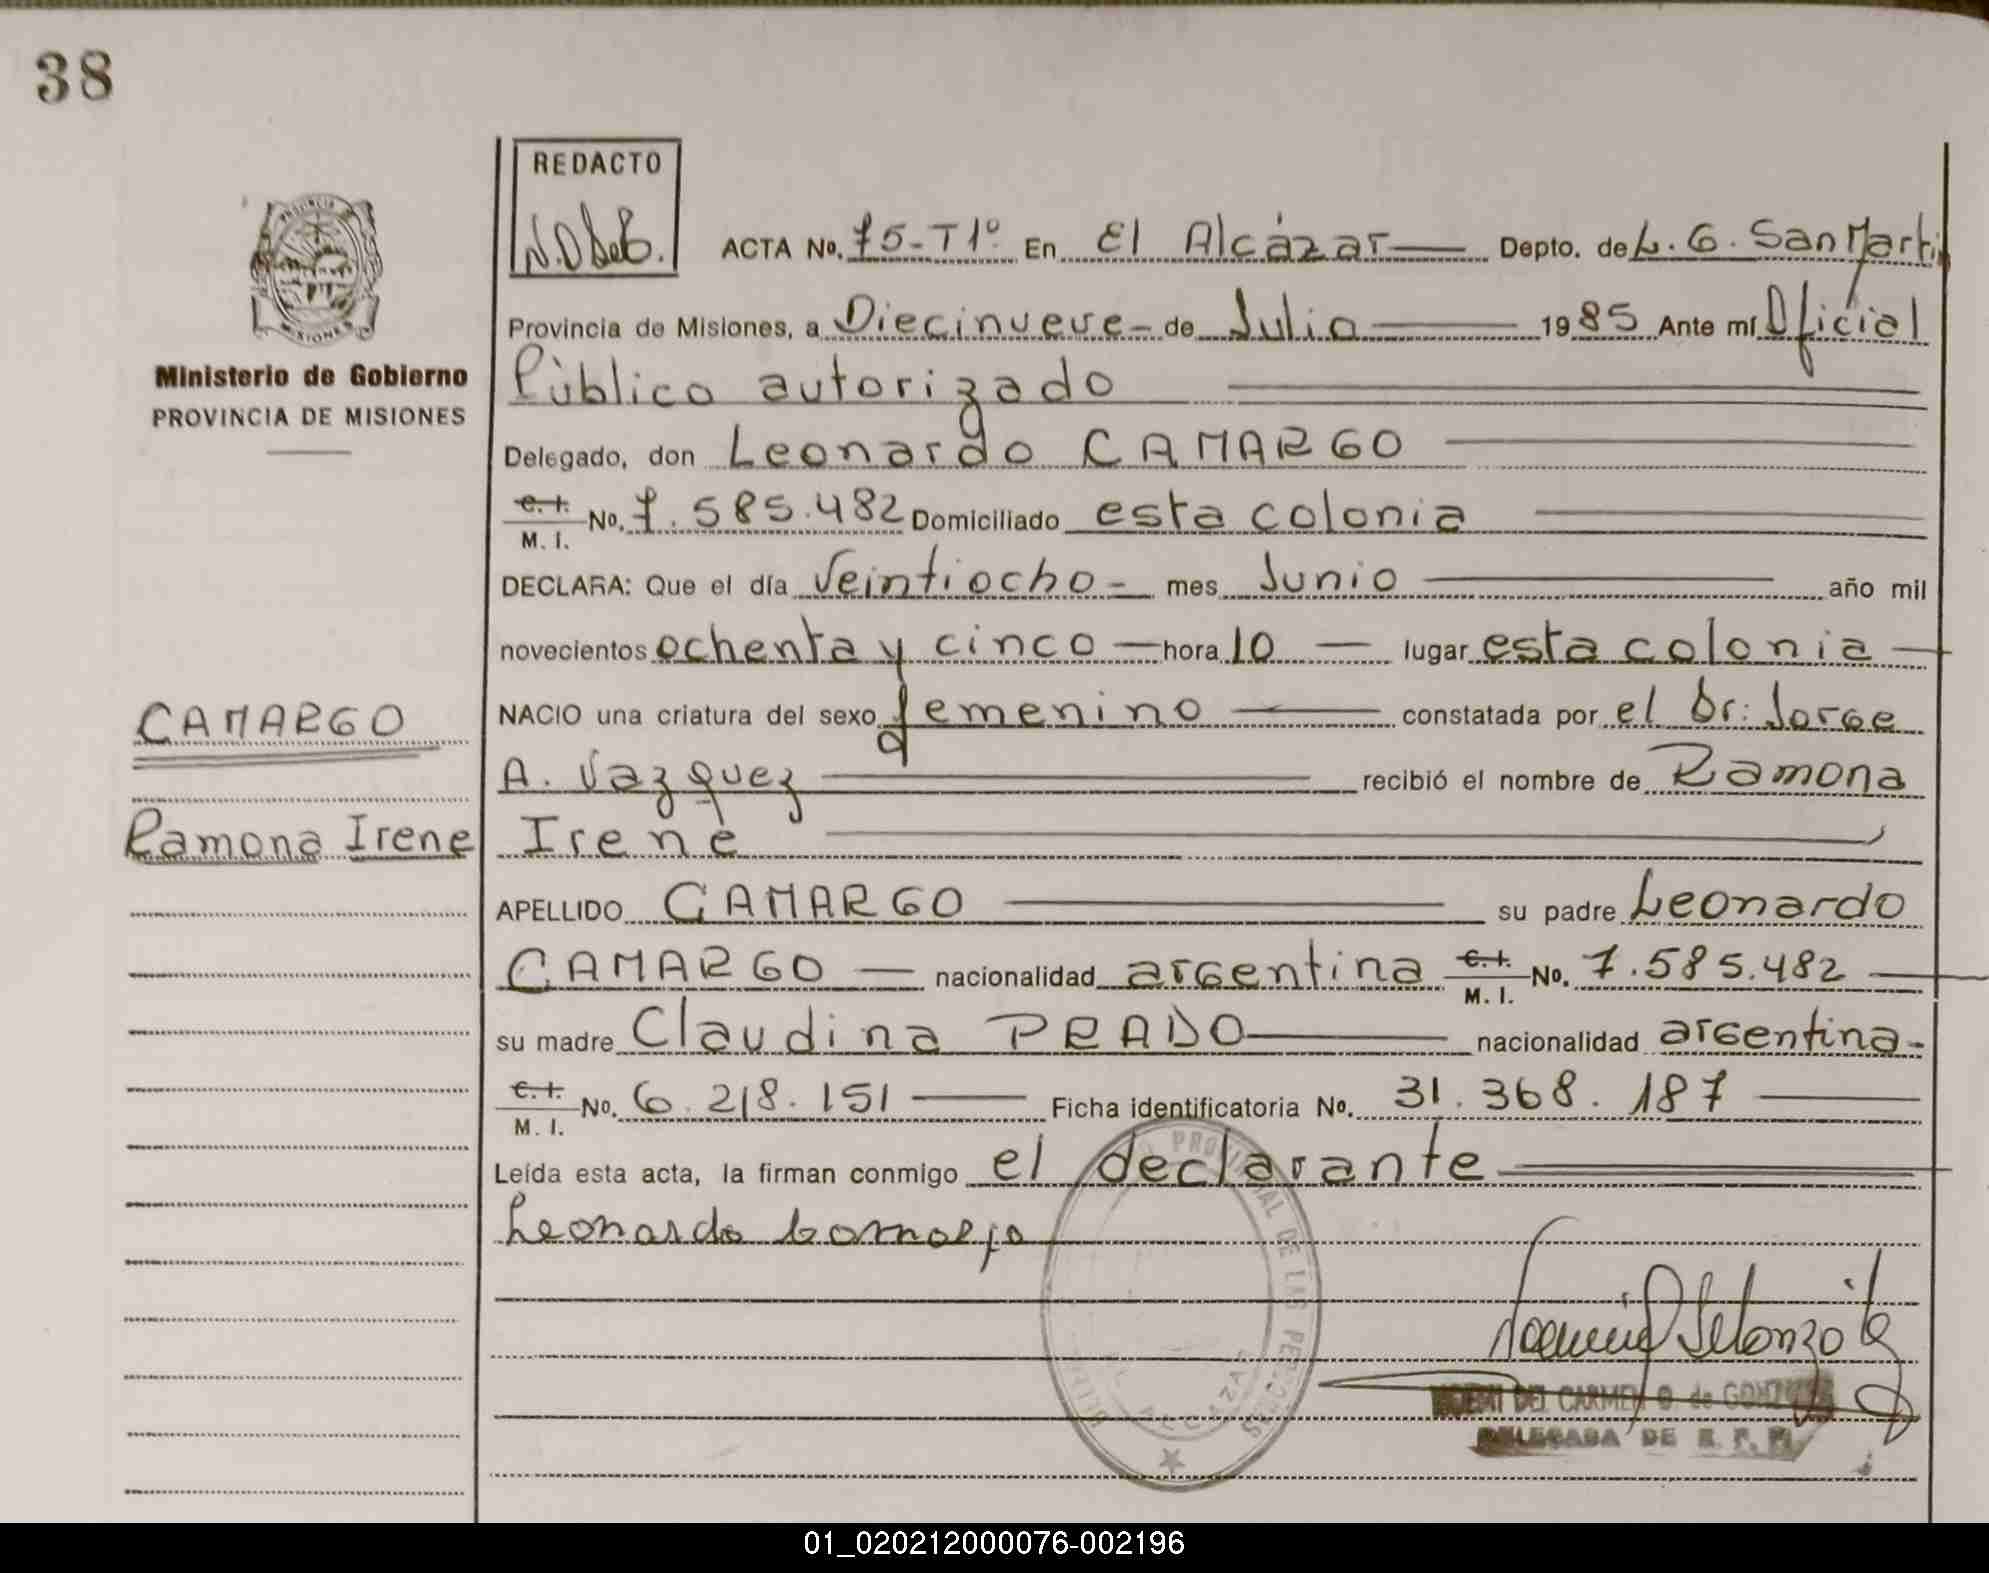 38
REDACTO
ACTA No. 75-T1º En El Alcázar Depto. de L. G. San Martin
Provincia de Misiones, a Diecinueve - de Julio 1985 Ante mí Oficial
Ministerio de Gobierno
PROVINCIA DE MISIONES
Público autorizado
Delegado, don Leonardo CAMARGO
C. I. M. I. No. 7.585.482 Domiciliado esta colonia
DECLARA: Que el día Veintiocho - mes Junio año mil
novecientos ochenta y cinco hora 10 lugar esta colonia
NACIO una criatura del sexo femenino constatada por el Dr. Jorge
CAMARGO
A. Vazquez recibió el nombre de Ramona
Ramona Irene
Irene
APELLIDO CAMARGO su padre Leonardo
CAMARGO nacionalidad argentina C. I. M. I. No. 7.585.482
su madre Claudina PRADO nacionalidad argentina -
C. I. M. I. No. 6.218.151 Ficha identificatoria No. 31.368.187
Leída esta acta, la firman conmigo el declarante
Leonardo Camargo
PROVINCIAL DE LAS PERSONAS
DEL CARMEN O. de
DELEGADA DE R. P. P.
01_020212000076-002196